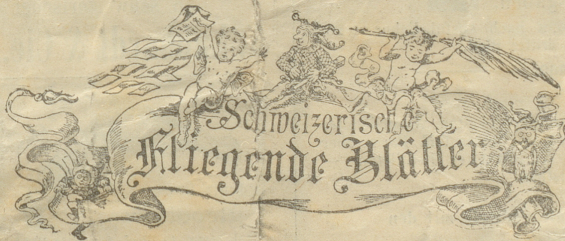 Schweizerische
Fliegende Blätter